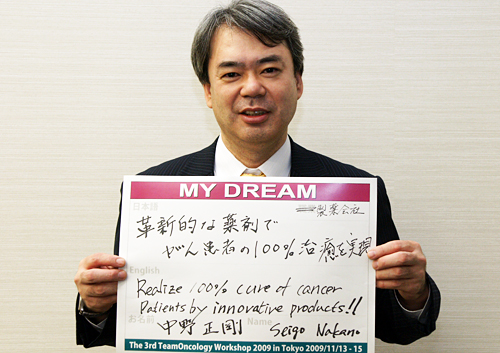 MY DREAM
日本語
製薬会社
革新的な薬剤で
がん患者の100%治療を実現
English
Realize 100% cure of cancer
Patients by innovative products!!
お名前
Name
中野 正剛 Seigo Nakano
The 3rd TeamOncology Workshop 2009 in Tokyo 2009/11/13 - 15